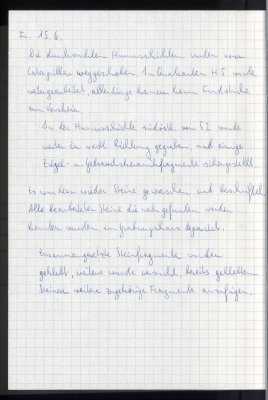 Fr. 15.6.
Die durchsuchten Humusschichten wurden vom
Caterpillar weggeschoben. In Quadranten H5 wurde
weitergearbeitet, allerdings kamen kaum Fundstücke
zum Vorschein.
In der Humusschichte südöstl. von S2 wurde
weiter in westl. Richtung gegraben, und einige
Ziegel- u. Gebrauchskeramikfragmente sichergestellt.
Es wurden wieder Steine gewaschen und beschriftet.
Alle bearbeiteten Steine die noch gefunden werden
konnten wurden im Grabungshaus deponiert.
Zusammengesetzte Steinfragmente wurden
geklebt, weiters wurde versucht, bereits geklebten
Steinen weitere zugehörige Fragmente anzufügen.